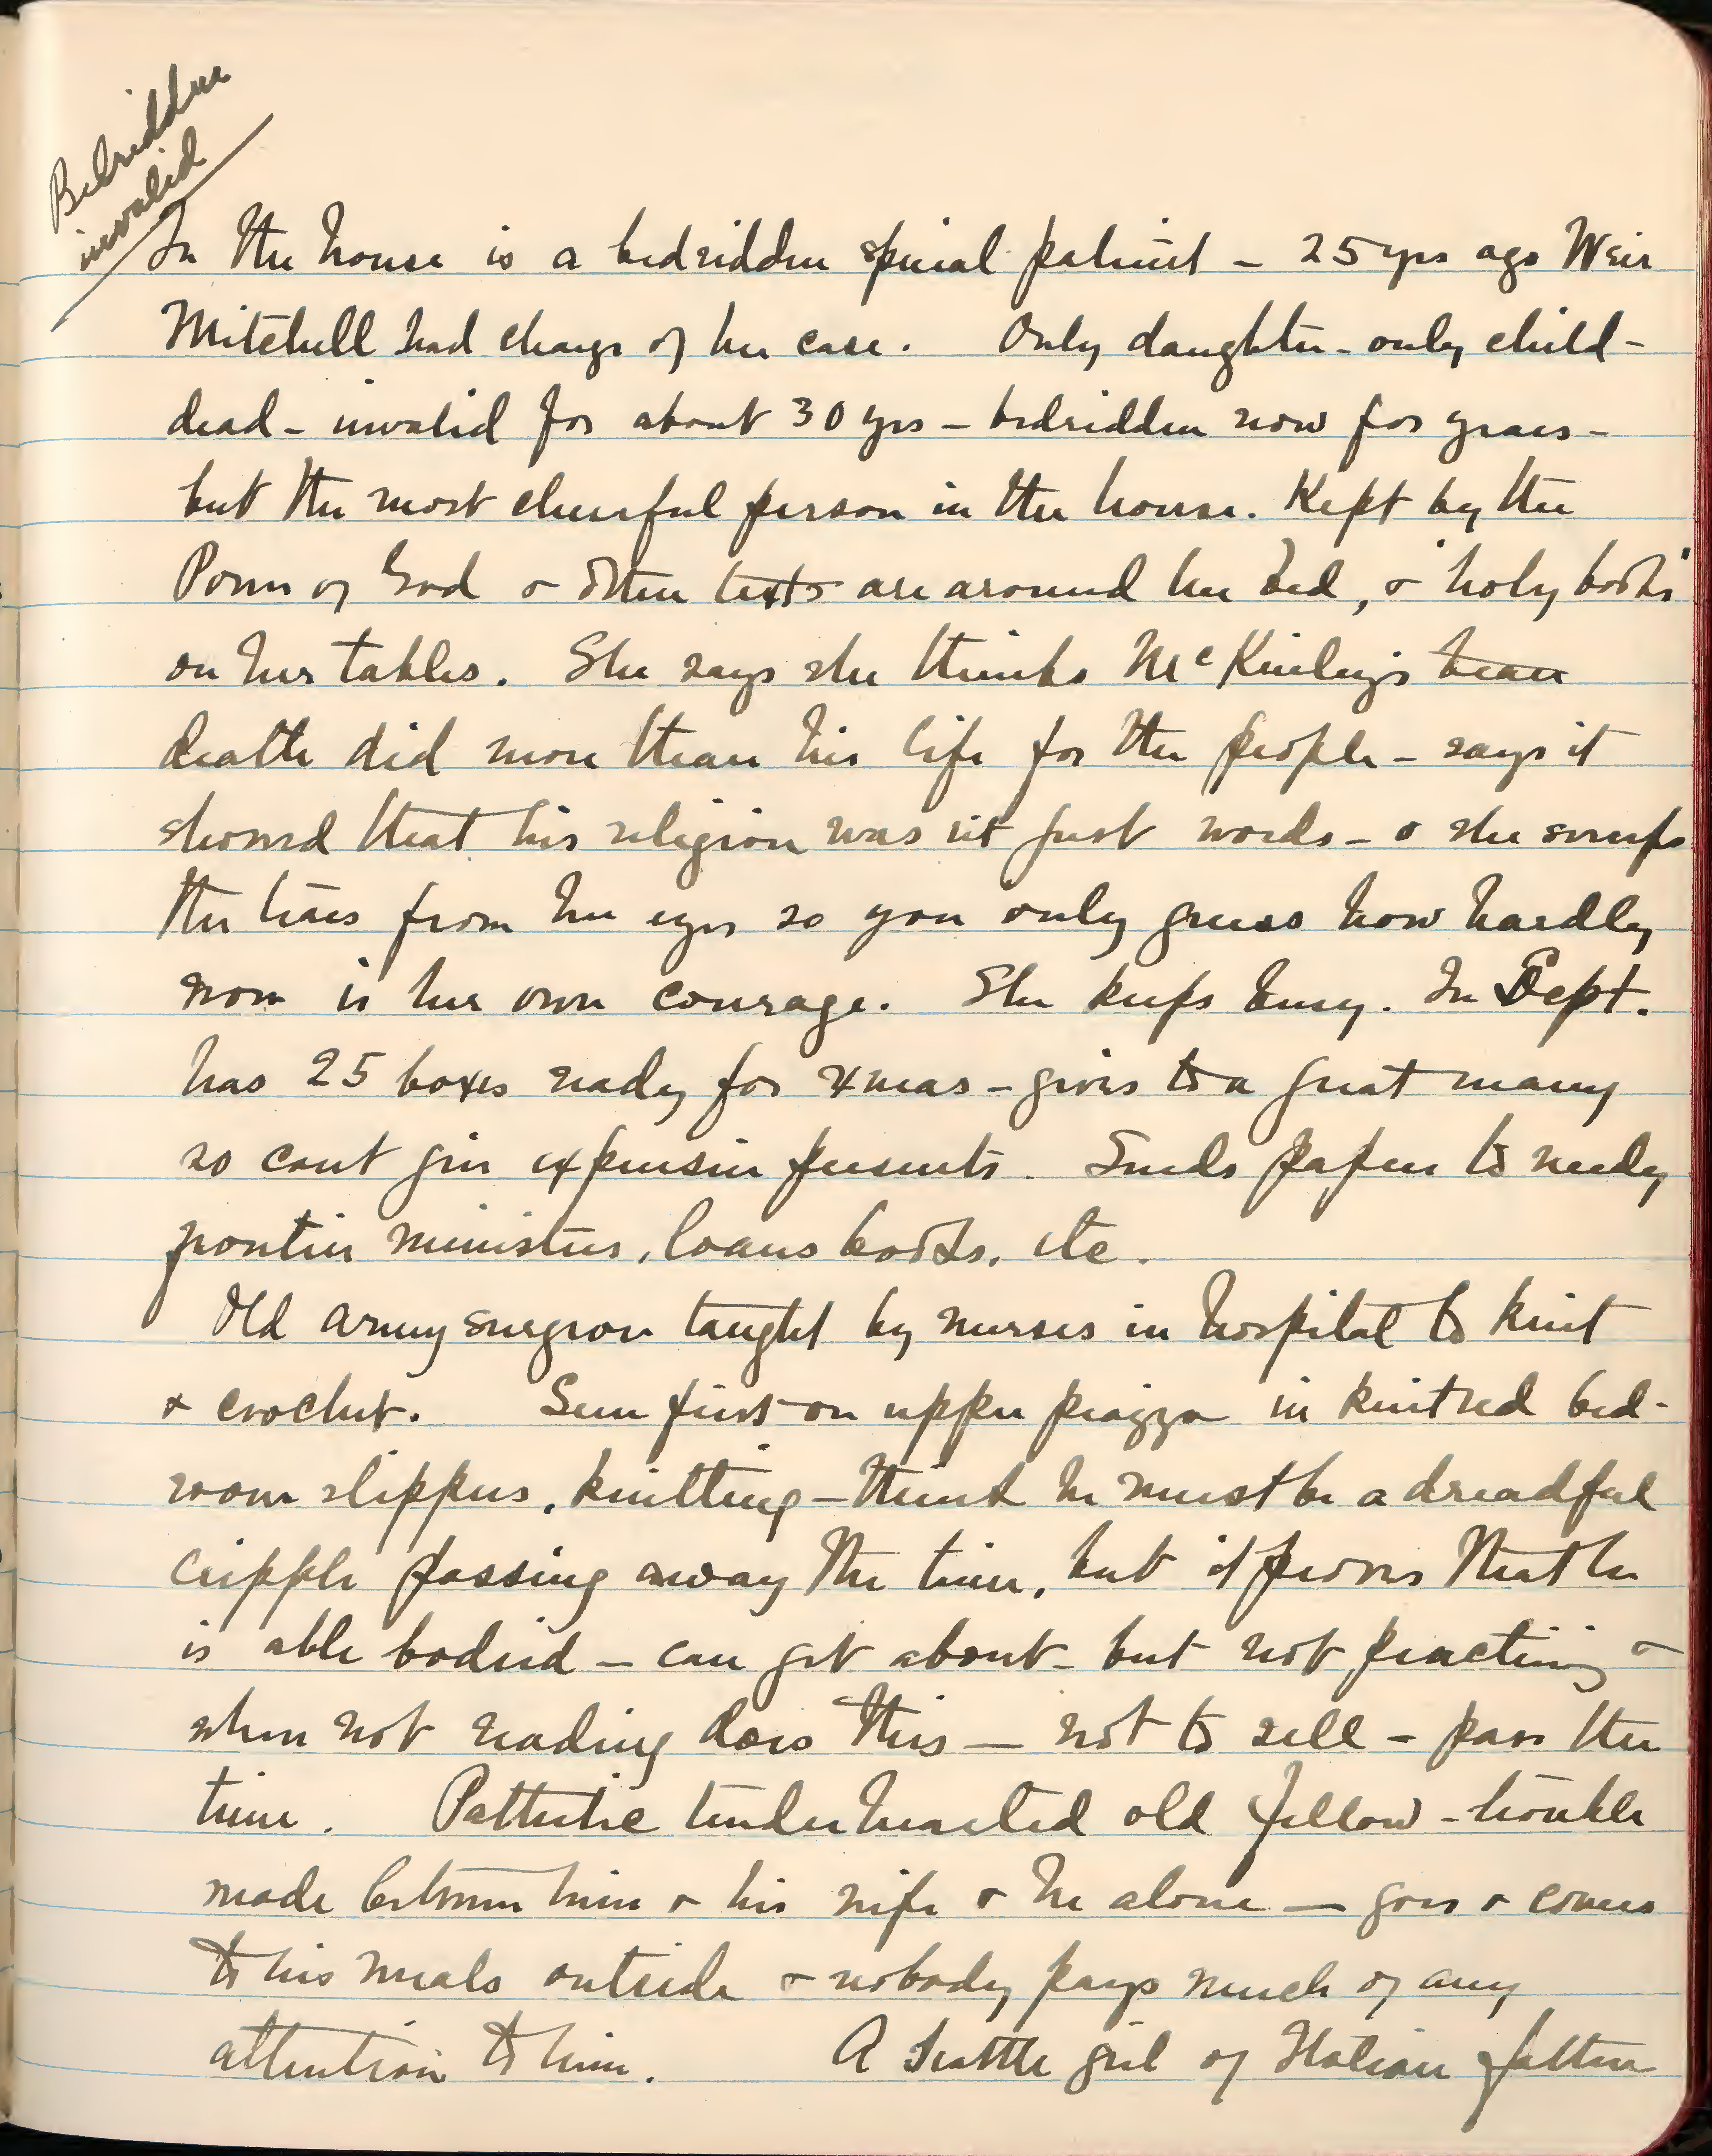 Bedridden
invalid
In the house is a bedridden spinal patient - 25 yrs ago Weir
Mitchell had charge of her case. Only daughter - only child -
dead - invalid for about 30 yrs - bedridden now for years -
but the most cheerful person in the house. Kept by the
Power of God & other texts are around her bed, & "holy books"
on her tables. She says she thinks McKinley's bear
death did more than his life for the people - says it
showed that his religion was n't just words - & she sweeps
the tears from her eyes so you only guess how hardly
won is her own courage. She keeps busy. In Sept.
has 25 boxes ready for xmas - gives to a great many
so cant give expensive presents. Sends papers to needy
frontier ministers, loans books, etc.
Old army surgeon taught by nurses in hospital to knit
& crochet. Seen first on upper piazza in knitted bed-
room slippers, knitting - think he must be a dreadful
cripple passing away the time, but it proves that he
is able bodied - can get about - but not practicing &
when not reading does this - not to sell - pass the
time. Pathetic tender hearted old fellow - trouble
made between him & his wife & he alone - goes & comes
to his meals outside & nobody pays much of any
attention to him. A Seattle girl of Italian father